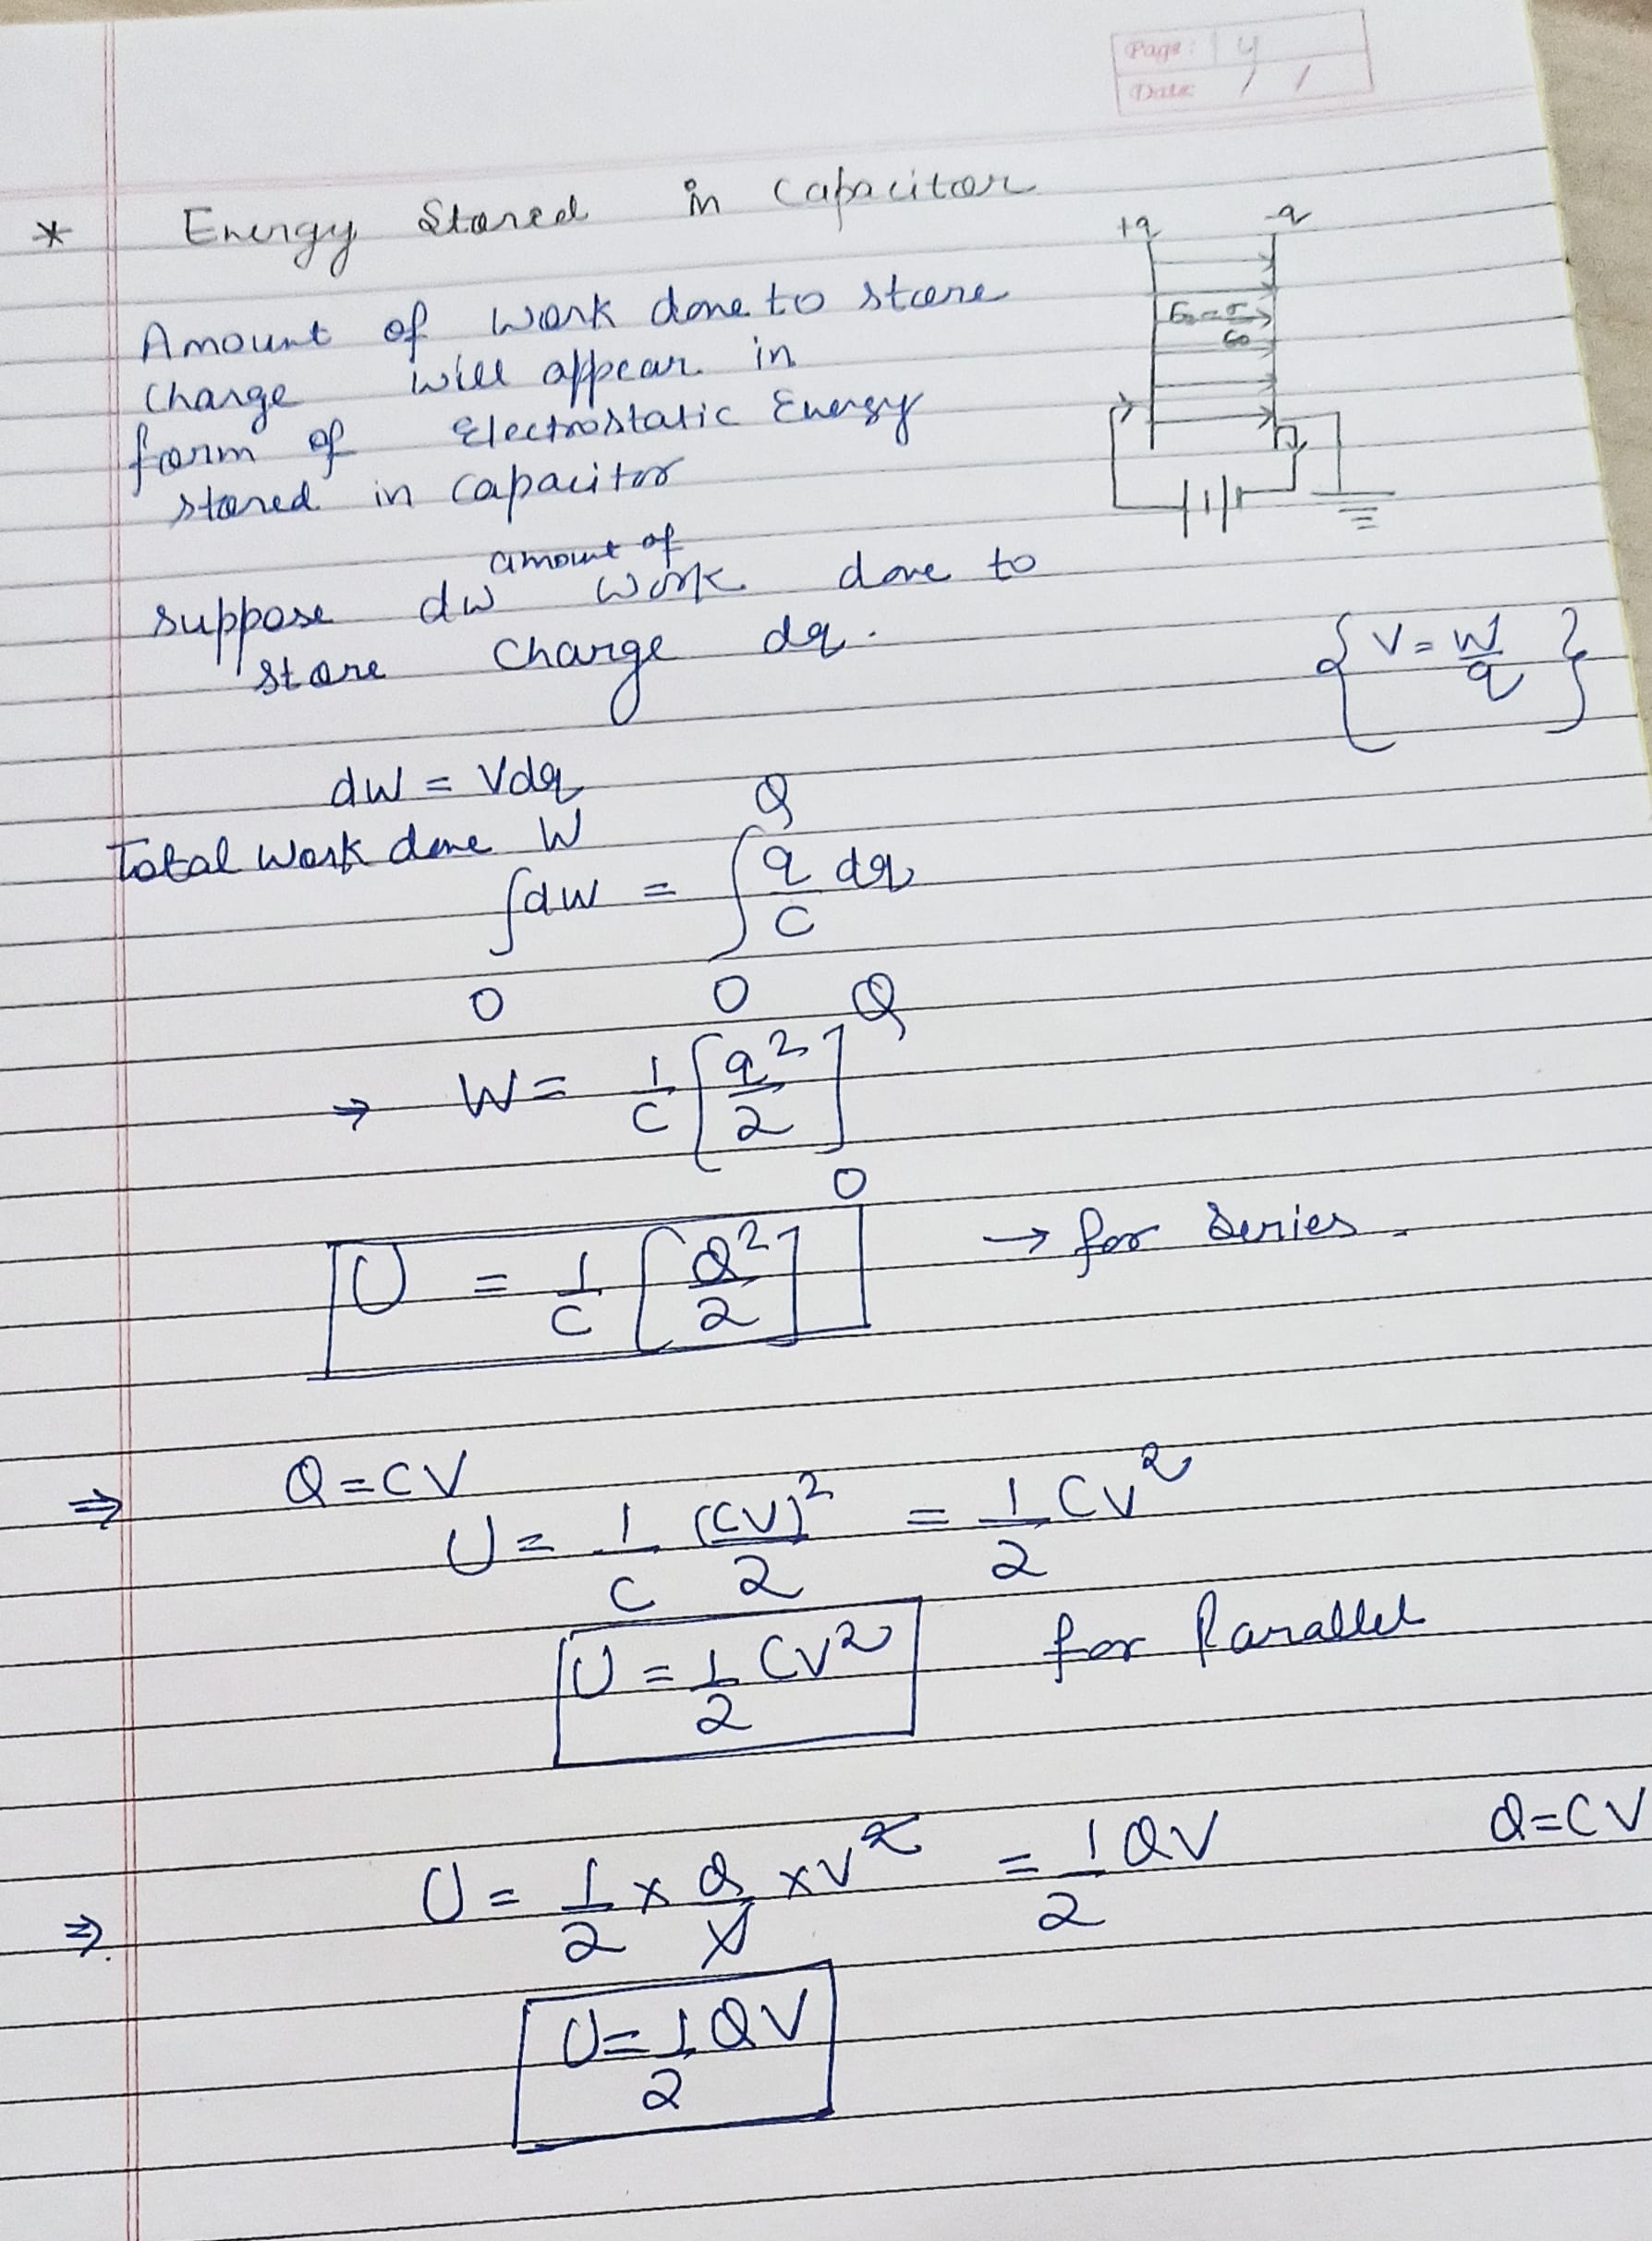 Page: 14
Date: / /
* Energy Stored in Capacitor
+q -q
E₀ = σ/ε₀
Amount of work done to store
charge will appear in
form of Electrostatic Energy
stored in capacitor
amount of
suppose dw work done to
store charge dq.
{ V = W/q }
dW = Vdq
Total work done W
∫dW = ∫ q/C dq
0 0 Q
⇒ W = 1/C [q²/2] Q 0
U = 1/C [Q²/2] → for series.
⇒ Q = CV
U = 1/C (CV)²/2 = 1/2 CV²
U = 1/2 CV² for Parallel
⇒ U = 1/2 × Q/V × V² = 1/2 QV Q = CV
U = 1/2 QV